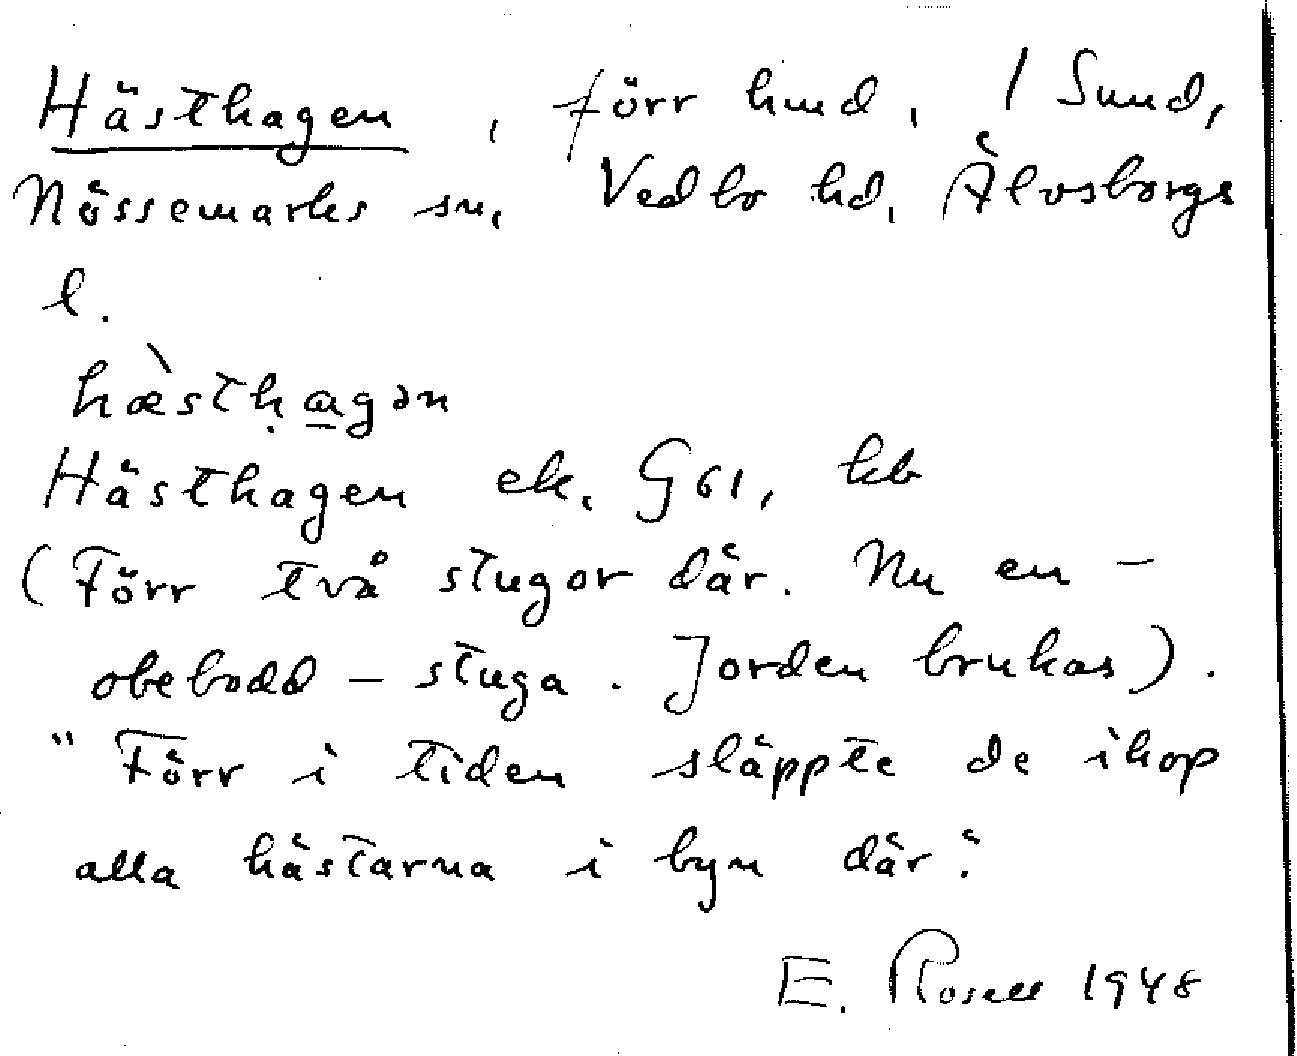 Hästhagen, förr hmd, 1 Sund,
Nössemarks sn, Vedbo hd, Älvsborgs
l.
hæ̀stḥa̲gən
Hästhagen ek. G61, hb
(Förr två stugor där. Nu en –
obebodd – stuga. Jorden brukas).
"Förr i tiden släppte de ihop
alla hästarna i byn där."
E. Rosell 1948